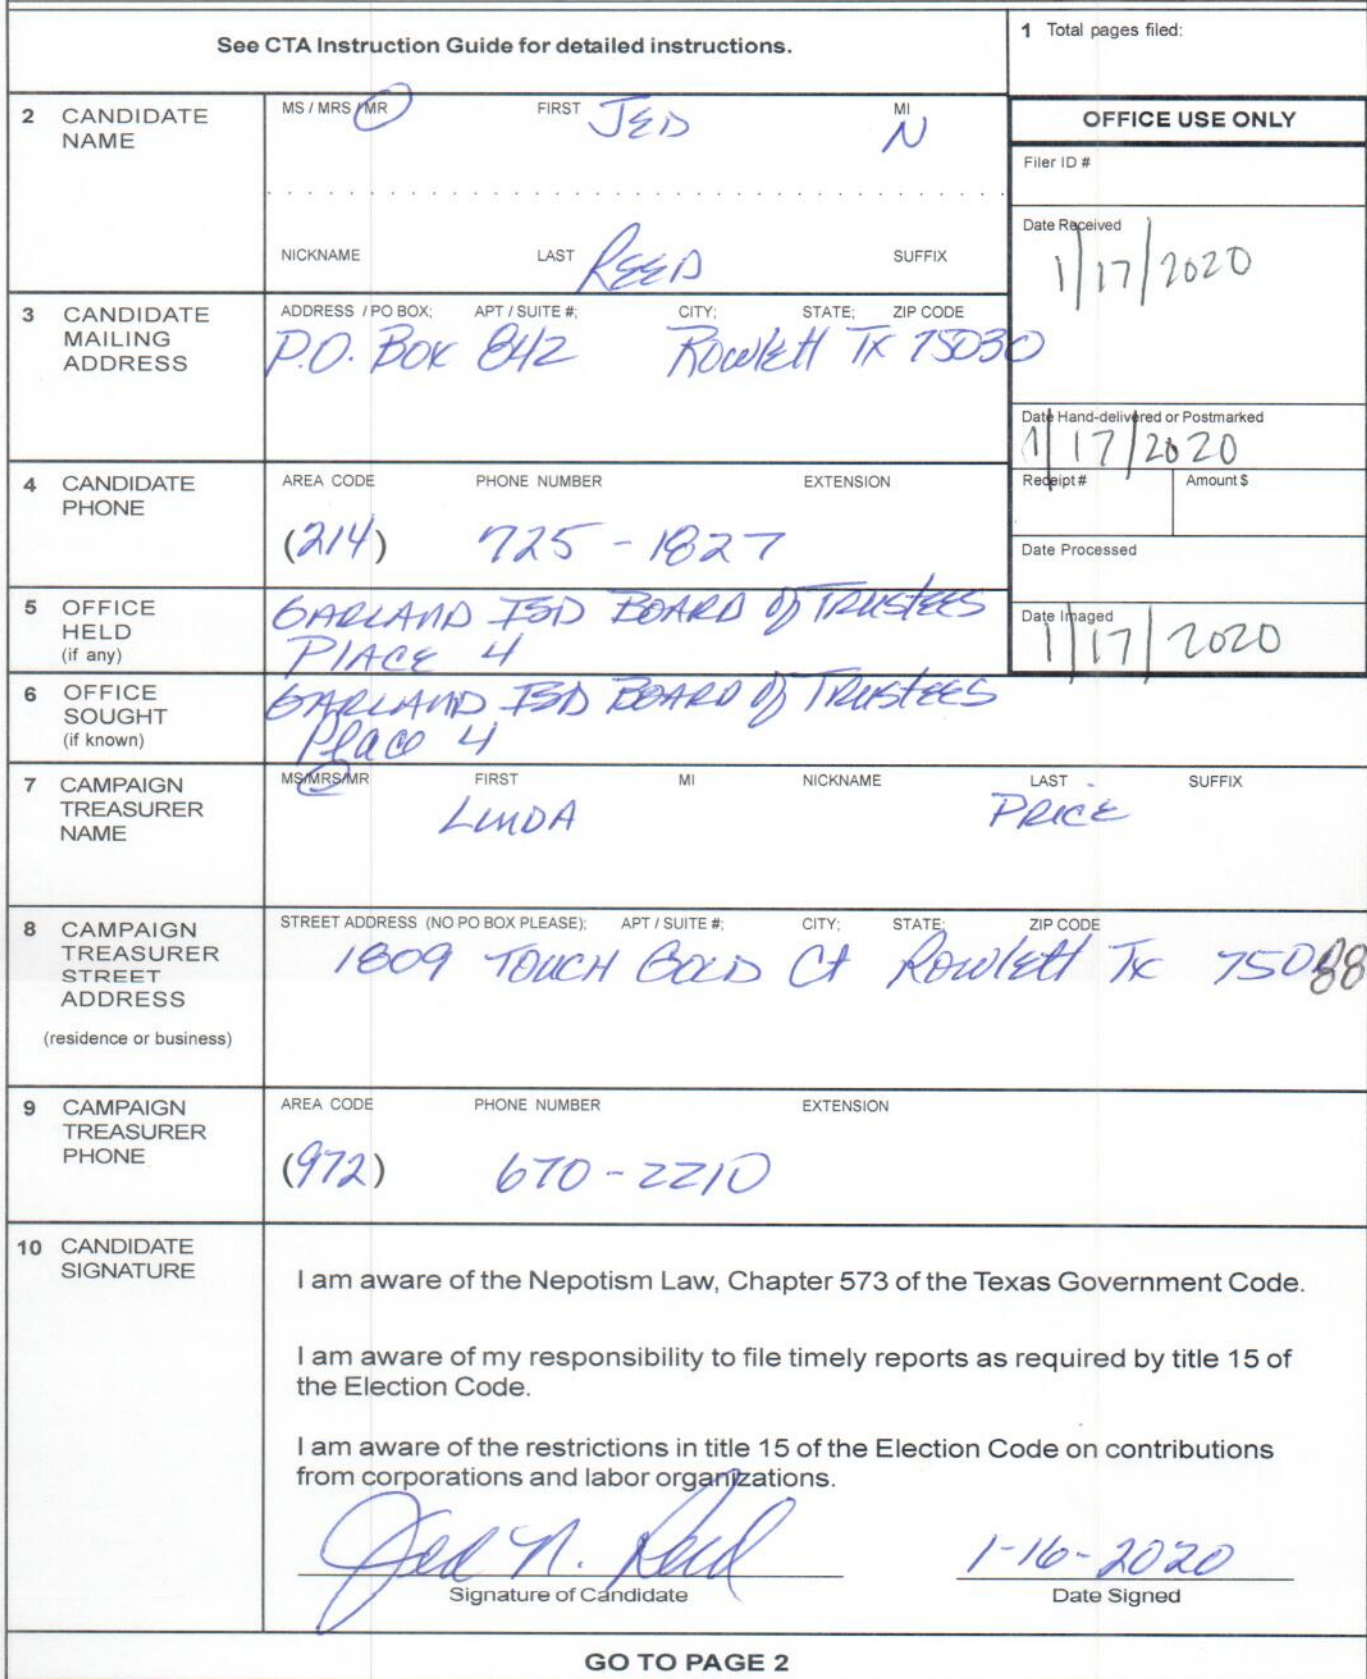 See CTA Instruction Guide for detailed instructions.
1 Total pages filed:
2 CANDIDATE NAME
MS / MRS / MR FIRST JED MI N
NICKNAME LAST REED SUFFIX
OFFICE USE ONLY
Filer ID #
Date Received
1/17/2020
3 CANDIDATE MAILING ADDRESS
ADDRESS / PO BOX; APT / SUITE #; CITY; STATE; ZIP CODE
P.O. Box 842 Rowlett TX 75030
Date Hand-delivered or Postmarked
1/17/2020
4 CANDIDATE PHONE
AREA CODE PHONE NUMBER EXTENSION
(214) 725-1827
Receipt # Amount $
Date Processed
5 OFFICE HELD (if any)
GARLAND ISD BOARD of TRUSTEES
PLACE 4
Date Imaged
1/17/2020
6 OFFICE SOUGHT (if known)
GARLAND ISD BOARD of TRUSTEES
Place 4
7 CAMPAIGN TREASURER NAME
MS/MRS/MR FIRST MI NICKNAME LAST SUFFIX
LINDA PRICE
8 CAMPAIGN TREASURER STREET ADDRESS
(residence or business)
STREET ADDRESS (NO PO BOX PLEASE); APT / SUITE #; CITY; STATE; ZIP CODE
1809 TOUCH GOLD Ct Rowlett TX 75088
9 CAMPAIGN TREASURER PHONE
AREA CODE PHONE NUMBER EXTENSION
(972) 670-2210
10 CANDIDATE SIGNATURE
I am aware of the Nepotism Law, Chapter 573 of the Texas Government Code.
I am aware of my responsibility to file timely reports as required by title 15 of
the Election Code.
I am aware of the restrictions in title 15 of the Election Code on contributions
from corporations and labor organizations.
Jed N. Reed 1-16-2020
Signature of Candidate Date Signed
GO TO PAGE 2